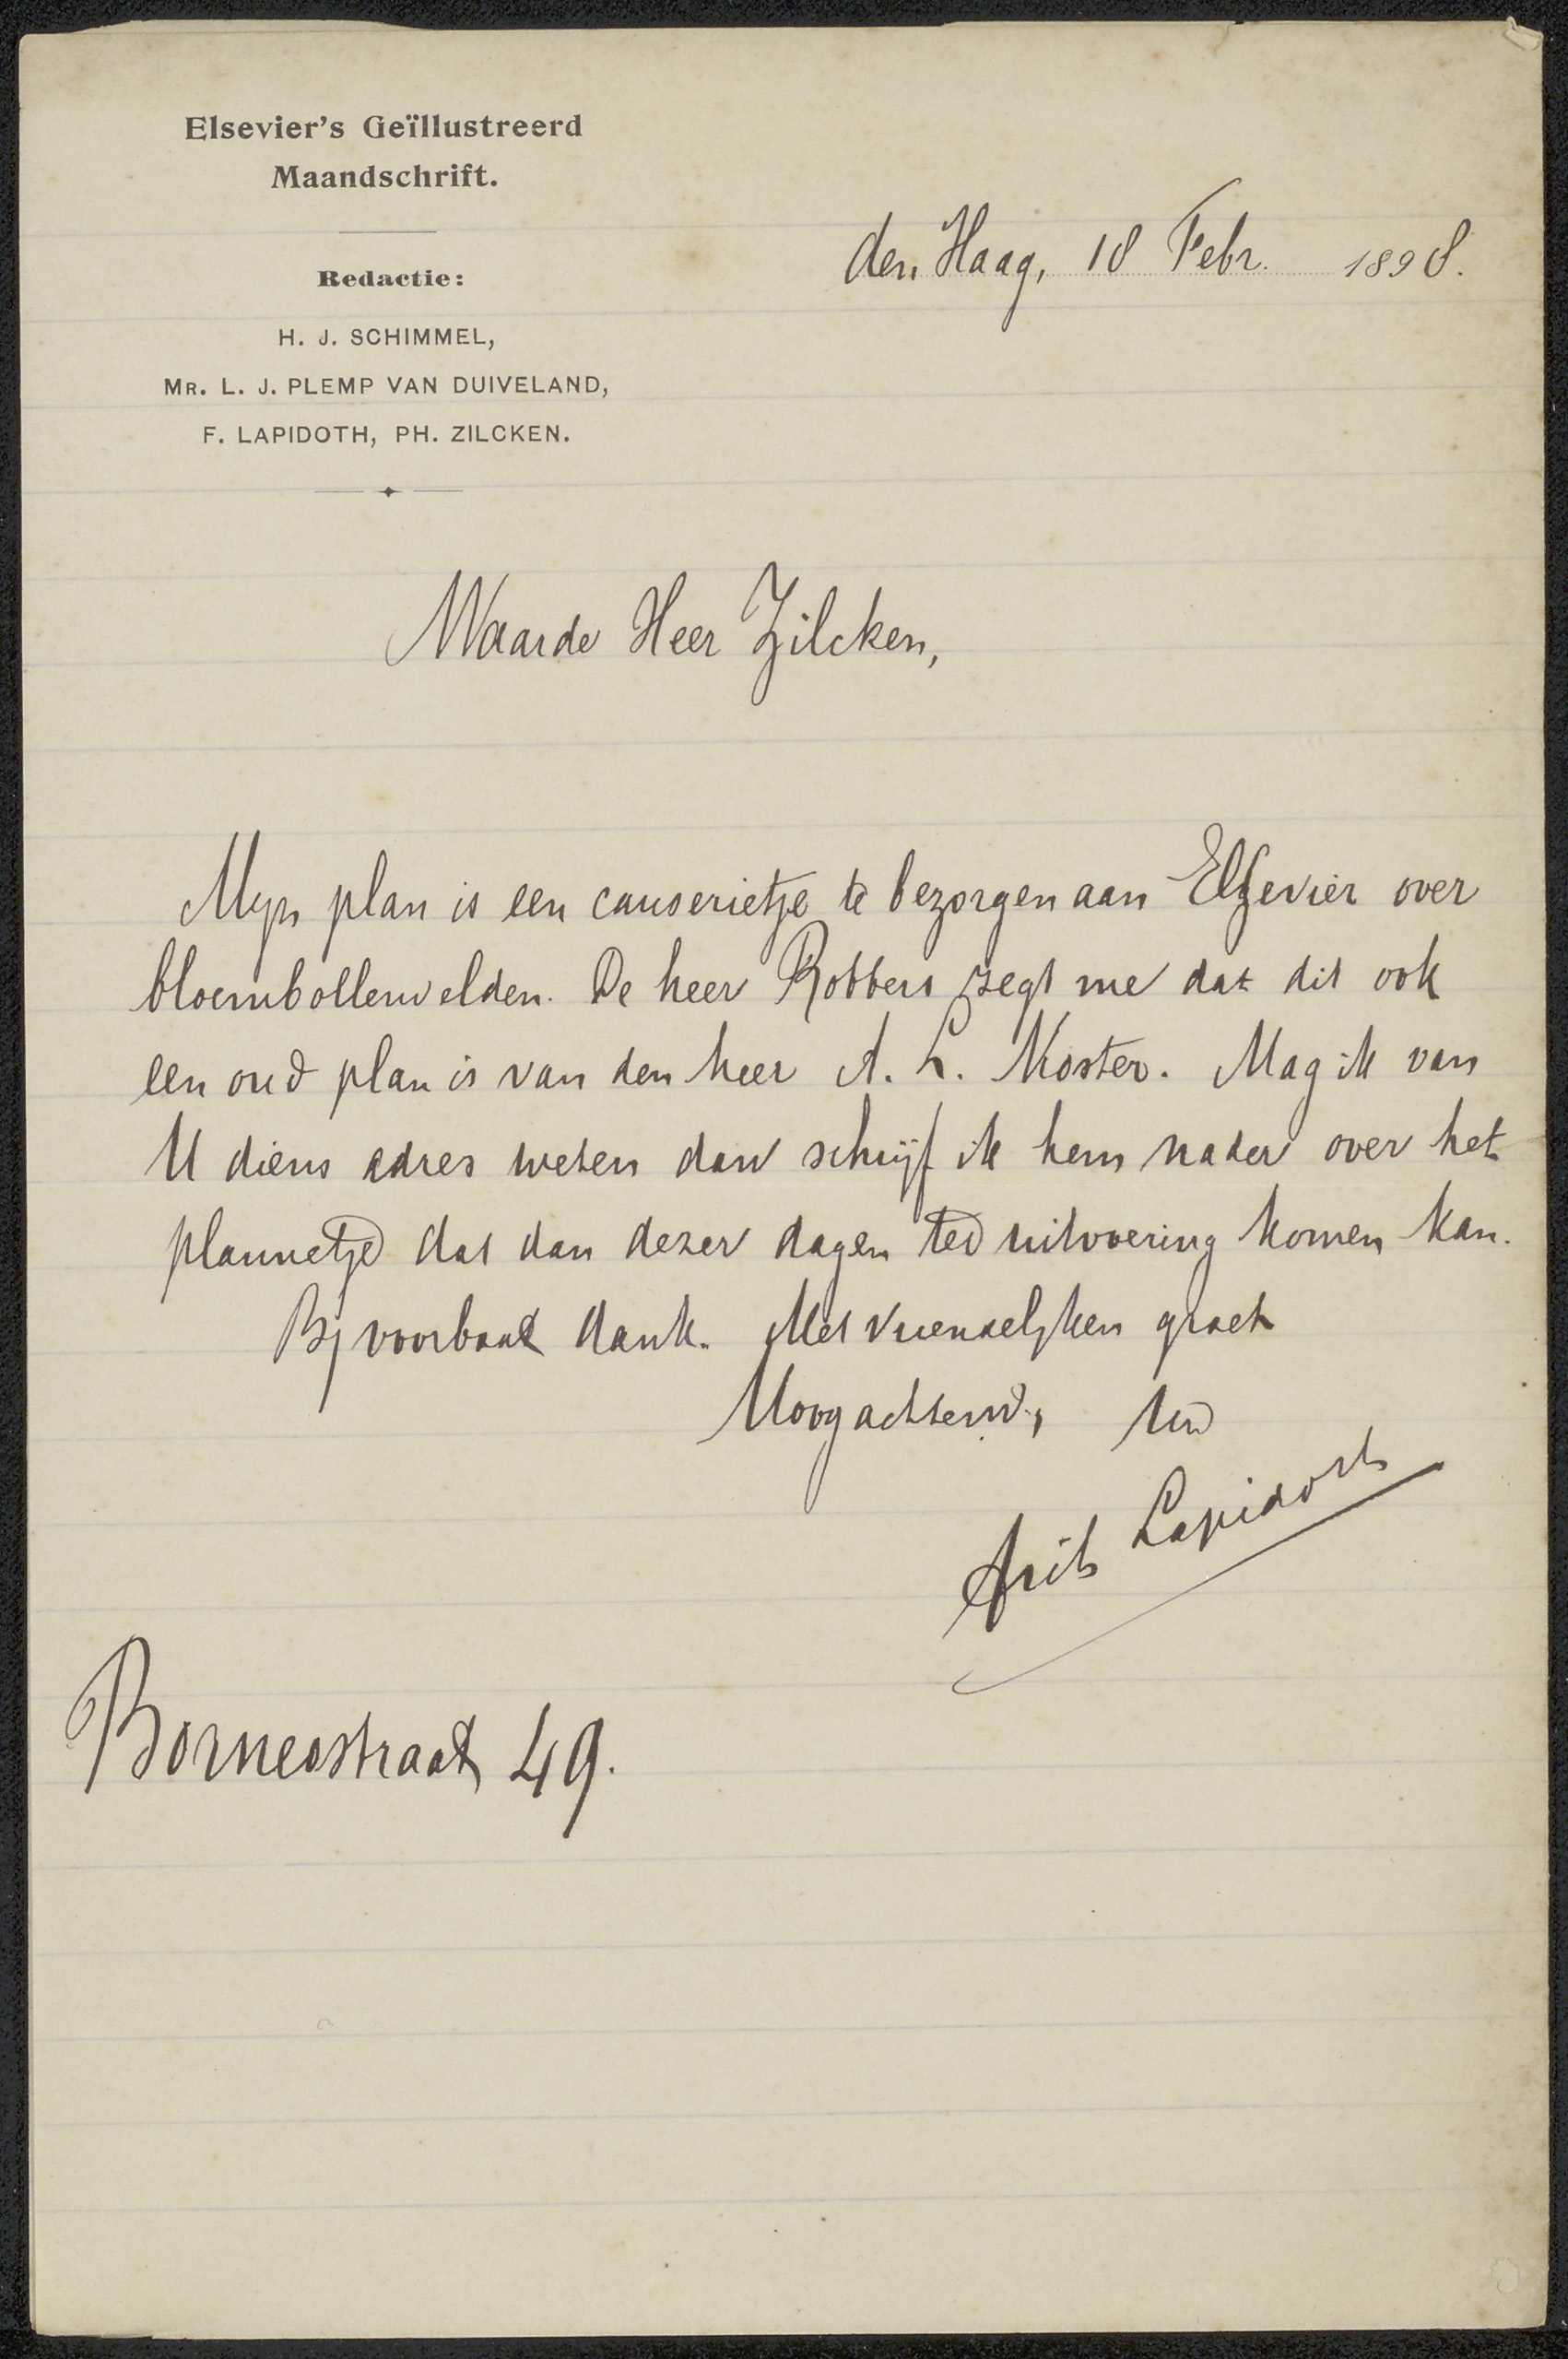 Elsevier's Geïllustreerd
Maandschrift.
Redactie:
H. J. SCHIMMEL,
MR. L. J. PLEMP VAN DUIVELAND,
F. LAPIDOTH, PH. ZILCKEN.
den Haag, 18 Febr. 1898.
Waarde Heer Zilcken,
Mijn plan is een causerietje te bezorgen aan Elzevier over
bloembollenvelden. De heer Robbers zegt me dat dit ook
een oud plan is van den heer A. L. Koster. Mag ik van
U diens adres weten dan schrijf ik hem nader over het
plannetje dat dan dezer dagen ter uitvoering komen kan.
Bij voorbaat dank. Met vriendelijken groet
Hoogachtend, Uw
Frits Lapidoth
Borneostraat 49.